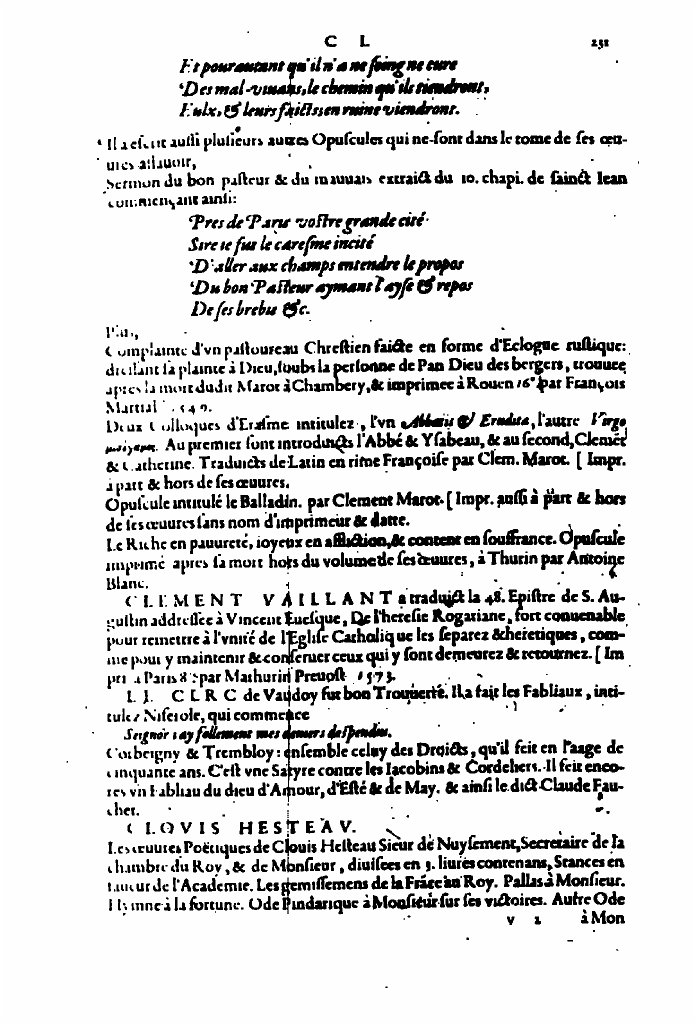 C L 231
Et pour autant qu'il n'a ne soing ne cure
Des mal-viuans, le chemin qu'ils tiendront,
Eulx, & leurs faicts en ruine viendront.
Il a escrit aussi plusieurs autres Opuscules qui ne sont dans le tome de ses œu-
ures assauoir,
Sermon du bon pasteur & du mauuais extraict du 10. chapi. de sainct Iean
commençant ainsi:
Pres de Paris vostre grande cité
Sire ie fus le caresme incité
D'aller aux champs entendre le propos
Du bon Pasteur aymant l'ayse & repos
De ses brebis &c.
Plus,
Complainte d'vn pastoureau Chrestien faicte en forme d'Eclogue rustique:
dressant sa plainte à Dieu, soubs la personne de Pan Dieu des bergers, trouuee
apres la mort dudit Marot à Chambery, & imprimee à Rouen 16° par François
Martial 1549.
Deux Colloques d'Erasme intitulez, l'vn Abbatis & Erudita, l'autre Virgo
μισόγαμος. Au premier sont introduicts l'Abbé & Ysabeau, & au second, Clemẽt
& Catherine. Traduicts de Latin en rime Françoise par Clem. Marot. [ Impr.
à part & hors de ses œuures.
Opuscule intitulé le Balladin. par Clement Marot. [ Impr. aussi à part & hors
de ses œuures sans nom d'imprimeur & datte.
Le Riche en pauureté, ioyeux en affliction, & content en souffrance. Opuscule
imprimé apres sa mort hors du volume de ses œuures, à Thurin par Antoine
Blanc.
CLEMENT VAILLANT a traduict la 48. Epistre de S. Au-
gustin addressee à Vincent Euesque, De l'heresie Rogariane, fort conuenable
pour remettre à l'vnité de l'Eglise Catholique les separez & heretiques, com-
me pour y maintenir & conseruer ceux qui y sont demeurez & retournez. [ Im
pri. à Paris 8° par Mathurin Preuost 1573.
LE CLERC de Vaudoy fut bon Trouuerre. Il a fait les Fabliaux, inti-
tulez Niserole, qui commence
Seignor i'ay follement mes deniers despendus.
Corbeigny & Trembloy: ensemble celuy des Droicts, qu'il feit en l'aage de
cinquante ans. C'est vne Satyre contre les Iacobins & Cordeliers. Il feit enco-
res vn Fabliau du dieu d'Amour, d'Esté & de May. & ainsi le dict Claude Fau-
chet.
CLOVIS HESTEAV.
Les œuures Poëtiques de Clouis Hesteau Sieur de Nuysement, Secretaire de la
chambre du Roy, & de Monsieur, diuisees en 3. liures contenans, Stances en
faueur de l'Academie. Les gemissemens de la Frãce au Roy. Pallas à Monsieur.
Hymne à la fortune. Ode Pindarique à Monsieur sur ses victoires. Autre Ode
V 2 à Mon